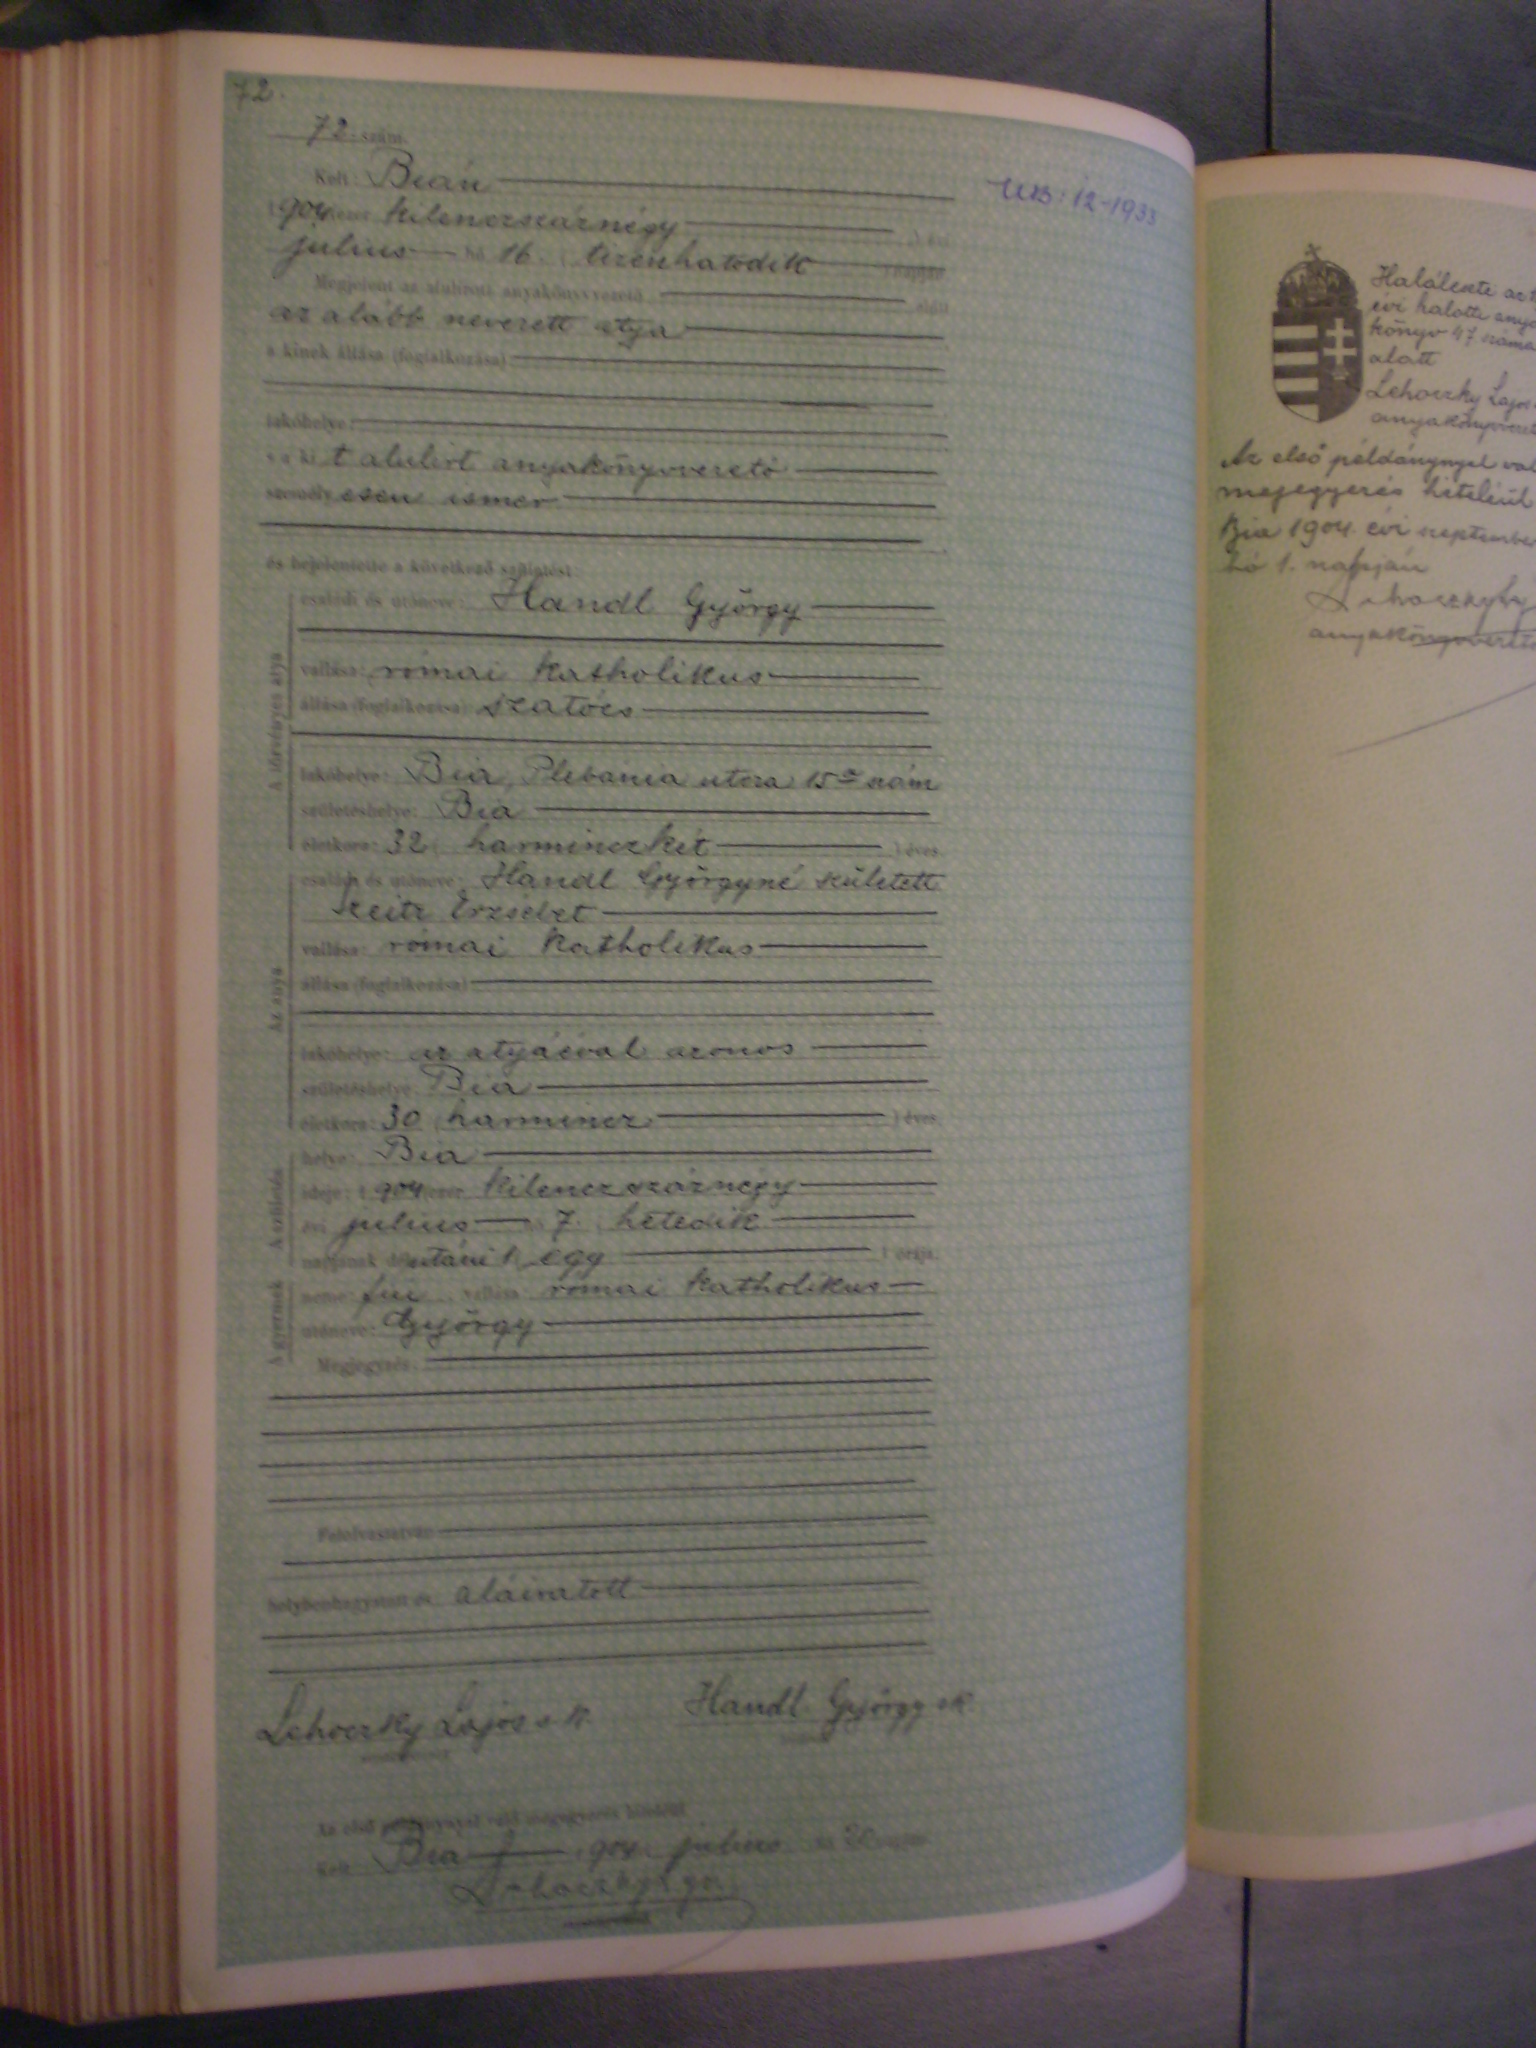 72.
72. szám.
Kelt: Bián
UB: 12-1933
1904 ezer kilenczszáznégy ) évi
július hó 16. ( tizenhatodik ) napján
Megjelent az alulirott anyakönyvvezető előtt
az alább nevezett atya
a kinek állása (foglalkozása)
lakóhelye:
a ki t alulirt anyakönyvvezető
személyesen ismer
és bejelentette a következő születést:
A törvényes atya
családi és utóneve: Handl György
vallása: római katholikus
állása (foglalkozása): szatócs
lakóhelye: Bia, Plebania utcza 15 a szám
születéshelye: Bia
életkora: 32 ( harminczkét ) éves.
Az anya
családi és utóneve: Handl Györgyné született
Szeitz Erzsébet
vallása: római katholikus
állása (foglalkozása)
lakóhelye: az atyáéval azonos
születéshelye: Bia
életkora: 30 ( harmincz ) éves.
A születés
helye: Bia
ideje: 1904 ezer kilenczszáznégy
évi július hó 7. ( hetedik
napjának délutáni 1 ( egy ) órája.
A gyermek
neme: fiú vallása: római katholikus
utóneve: György
Megjegyzés:
Felolvastatván
helybenhagyatott és aláiratott
Lehoczky Lajos s. k. Handl György s k.
Az első példánynyal való megegyezés hiteléül
Kelt Bia 1904. július hó 20 napján
Lehoczky Lajos
Halálesete az
évi halotti anya
könyv 47 száma
alatt
Lehoczky Lajos
anyakönyvvezető
Az első példánynyal való
megegyezés hiteléül
Bia 1904. évi szeptember
hó 1. napján
Lehoczky
anyakönyvvezető